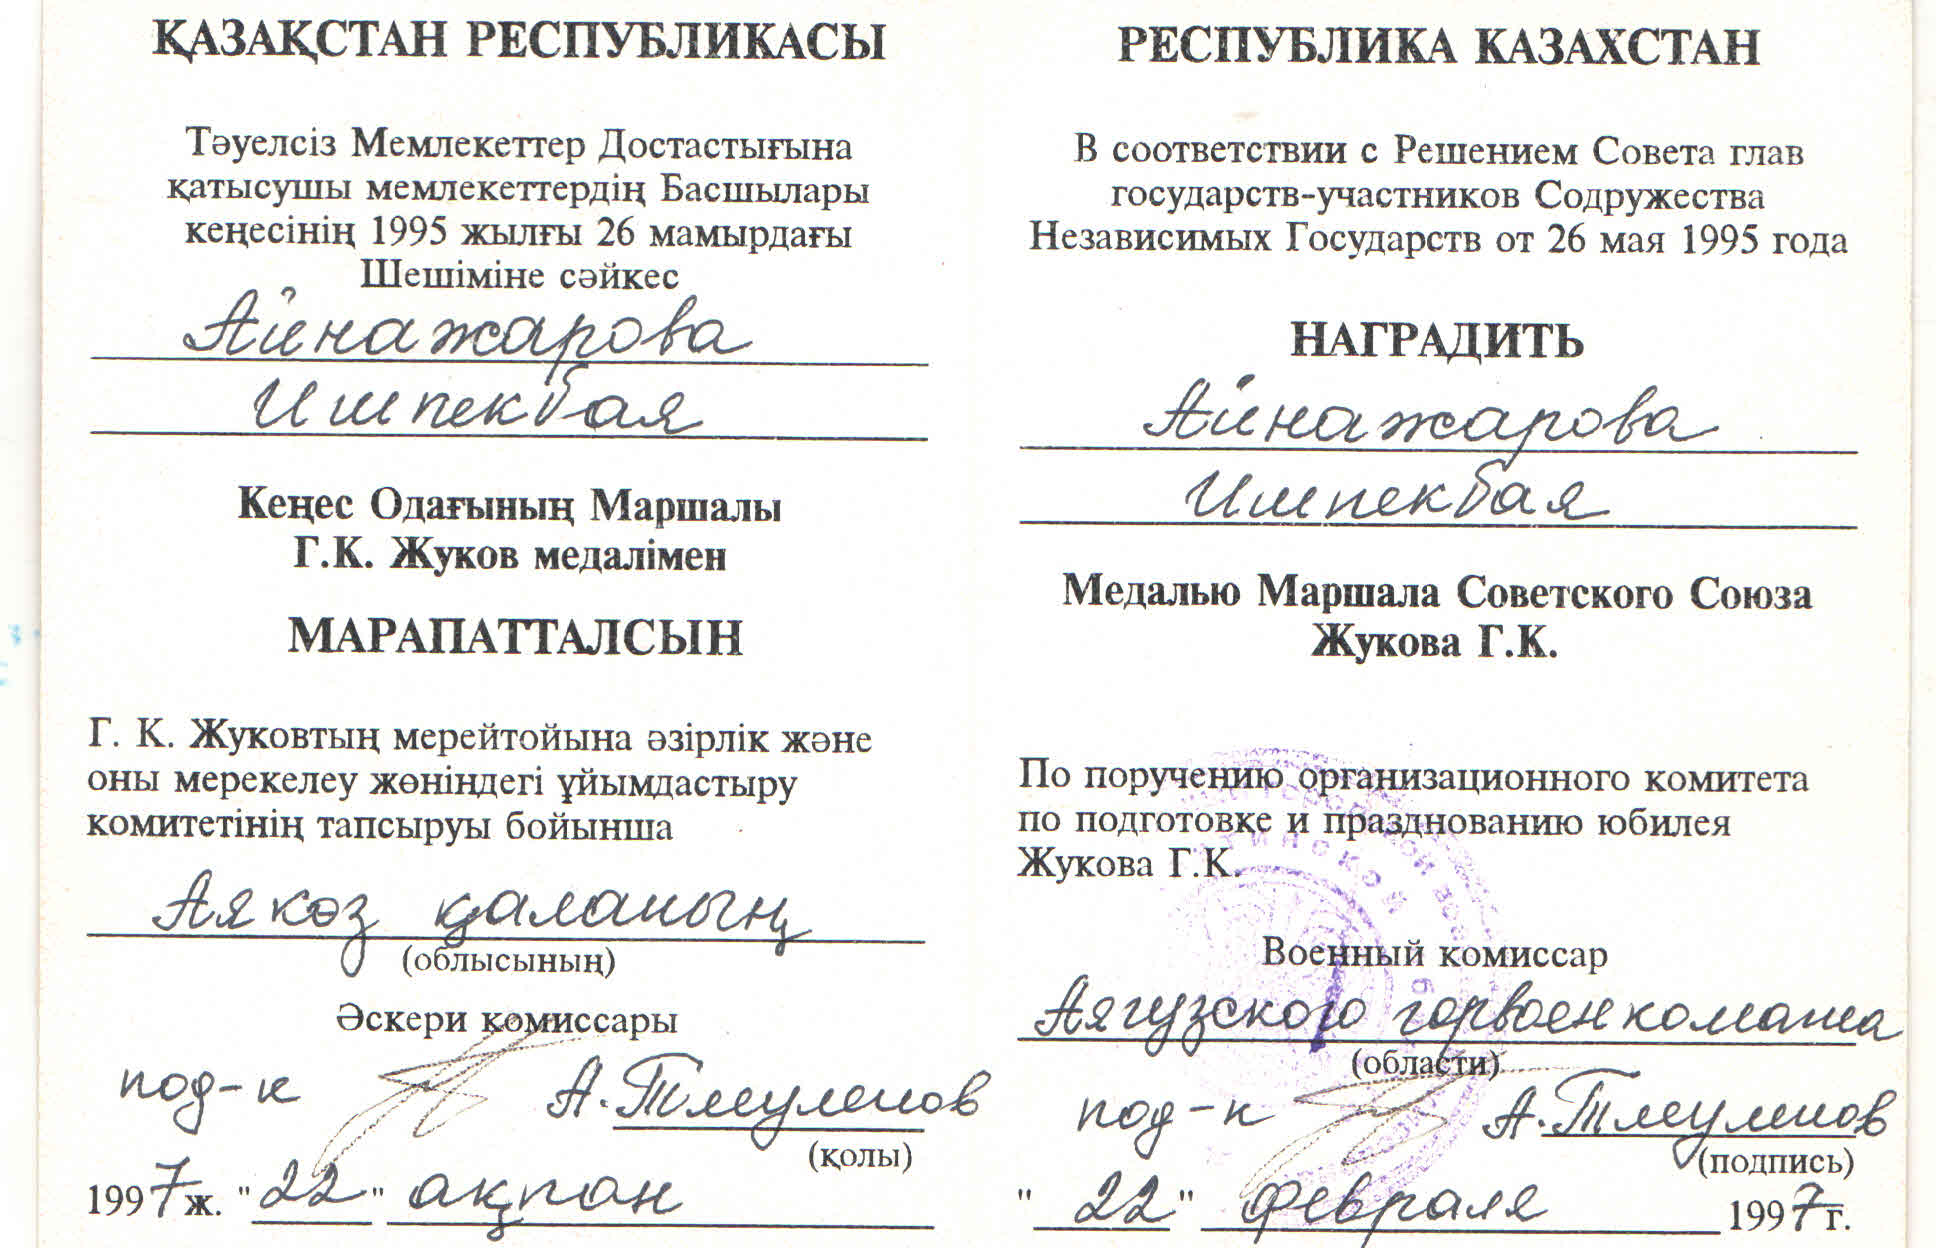 ҚАЗАҚСТАН РЕСПУБЛИКАСЫ
Тәуелсіз Мемлекеттер Достастығына
қатысушы мемлекеттердің Басшылары
кеңесінің 1995 жылғы 26 мамырдағы
Шешіміне сәйкес
Айнажарова
Ишпекбая
Кеңес Одағының Маршалы
Г.К. Жуков медалімен
МАРАПАТТАЛСЫН
Г. К. Жуковтың мерейтойына әзірлік және
оны мерекелеу жөніндегі ұйымдастыру
комитетінің тапсыруы бойынша
Аякөз қаланың
(облысының)
Әскери комиссары
под-к А. Тлеуленов
(қолы)
1997 ж. "22" ақпан
РЕСПУБЛИКА КАЗАХСТАН
В соответствии с Решением Совета глав
государств-участников Содружества
Независимых Государств от 26 мая 1995 года
НАГРАДИТЬ
Айнажарова
Ишпекбая
Медалью Маршала Советского Союза
Жукова Г.К.
По поручению организационного комитета
по подготовке и празднованию юбилея
Жукова Г.К.
Военный комиссар
Аягузского горвоенкомата
(области)
под-к А. Тлеуленов
(подпись)
"22" февраля 1997 г.